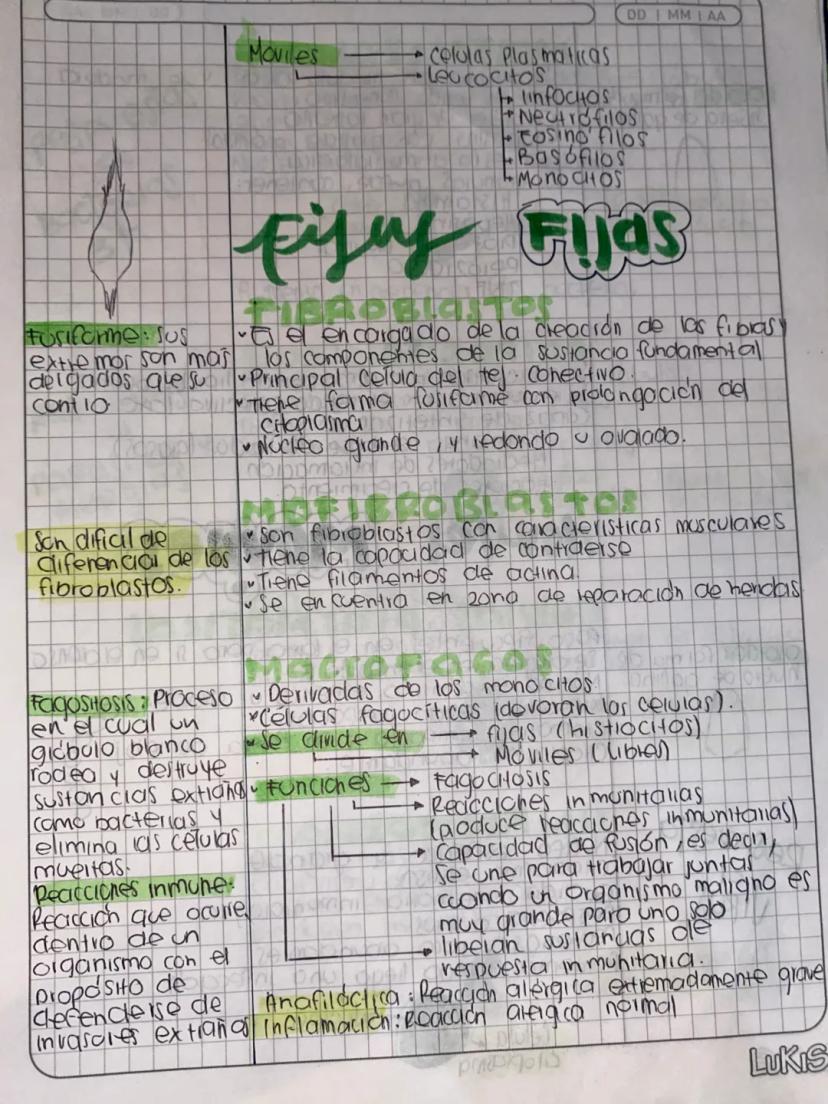 DD | MM | AA
Moviles → Celulas Plasmaticas
→ Leucocitos
Linfocitos
Neutrófilos
Eosinó filos
Basófilos
Monocitos
Fijas Fijas
FIBROBLASTOS
• Es el encargado de la creación de las fibras y
los componentes de la sustancia fundamental
• Principal celula del tej. conectivo.
• Tiene forma fusiforme con prolongación del
citoplasma
• Núcleo grande, y redondo u ovalado.
Fusiforme: sus
extremos son mas
delgados que su
contro
MOFIBROBLASTOS
• son fibroblastos con caracteristicas musculares
• tiene la capacidad de contraerse
• Tiene filamentos de actina.
• se encuentra en zona de reparación de heridas
Son dificil de
diferenciar de los
fibroblastos.
MACROFAGOS
• Derivadas de los monocitos.
• Células fagocíticas (devoran las celulas).
• Se divide en → fijas (histiocitos)
→ Móviles (libres)
• Funciones → Fagocitosis
→ Reacciones inmunitarias
(produce reacciones inmunitarias)
→ capacidad de fusión, es decir,
se une para trabajar juntas
cuando un organismo maligno es
muy grande para uno solo
→ liberan sustancias de
respuesta inmunitaria.
Anafiláctica: Reacción alérgica extremadamente grave
Inflamación: Reacción alérgica normal
Fagositosis: Proceso
en el cual un
glóbulo blanco
rodea y destruye
sustancias extrañas
como bacterias y
elimina las células
muertas.
Reacciones inmune:
Reacción que ocurre
dentro de un
organismo con el
proposito de
defenderse de
invasores extraños
LUKIS